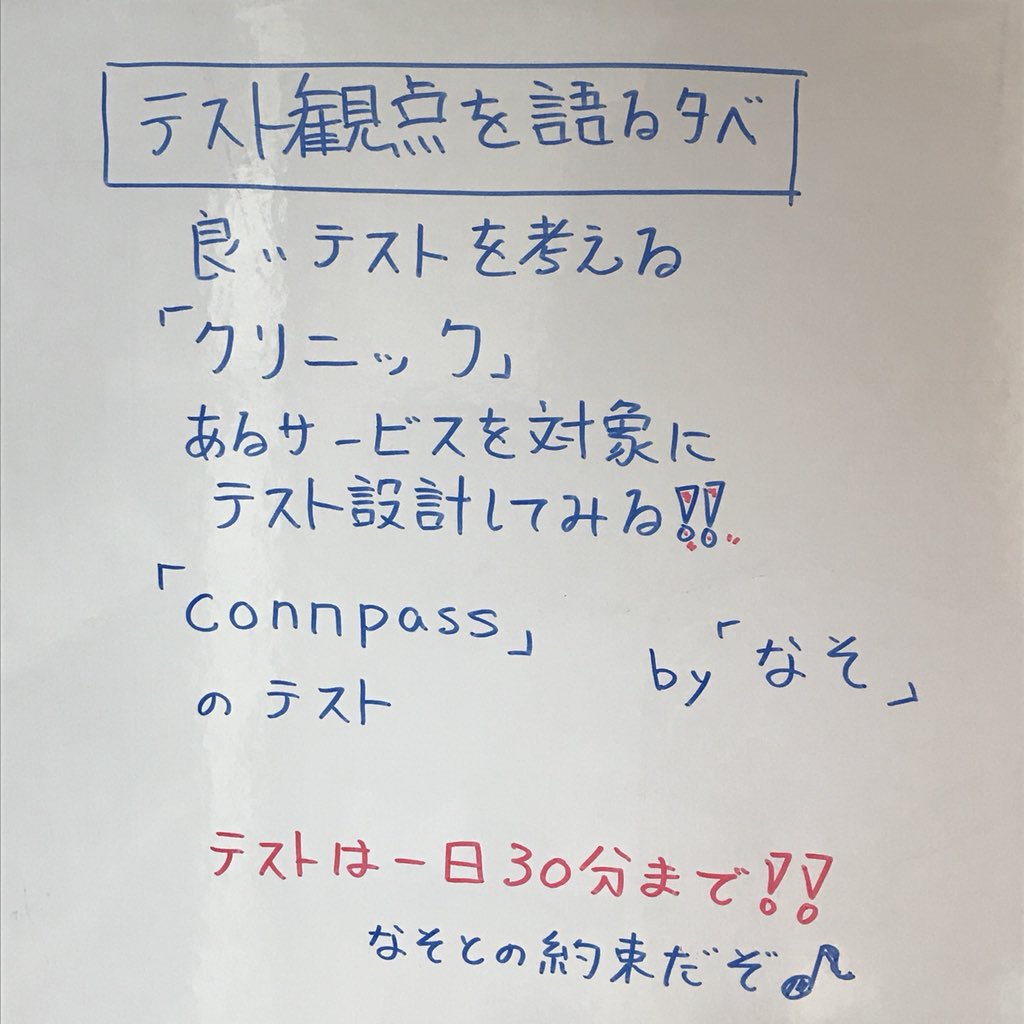 テスト観点を語る夕べ
良いテストを考える
「クリニック」
あるサービスを対象に
テスト設計してみる!!
「connpass」
のテスト
by「なそ」
テストは一日30分まで!!
なそとの約束だぞ♪